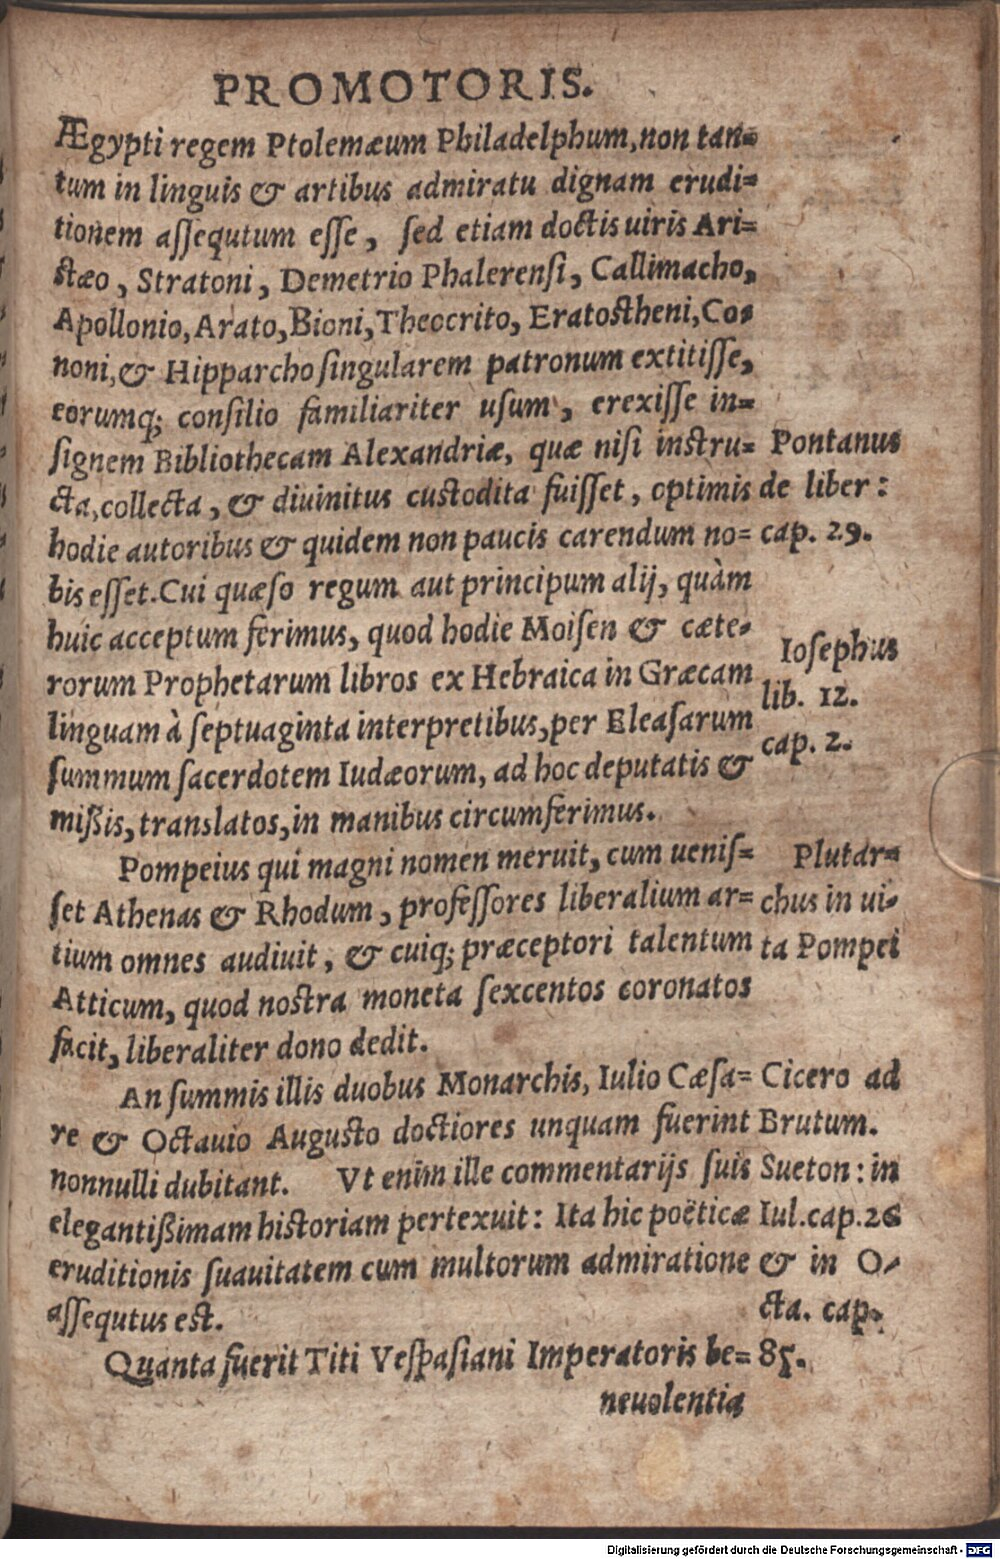 PROMOTORIS.
Ægypti regem Ptolemæum Philadelphum, non tan=
tum in linguis & artibus admiratu dignam erudi=
tionem aſſequtum eſſe, ſed etiam doctis uiris Ari=
ſtæo, Stratoni, Demetrio Phalerenſi, Callimacho,
Apollonio, Arato, Bioni, Theocrito, Eratoſtheni, Co=
noni, & Hipparcho ſingularem patronum extitiſſe,
eorumq; conſilio familiariter uſum, erexiſſe in=
ſignem Bibliothecam Alexandriæ, quæ niſi inſtru=
cta, collecta, & diuinitus cuſtodita fuiſſet, optimis
hodie autoribus & quidem non paucis carendum no=
bis eſſet. Cui quæſo regum aut principum alij, quàm
huic acceptum ferimus, quod hodie Moiſen & cæte=
rorum Prophetarum libros ex Hebraica in Græcam
linguam à ſeptuaginta interpretibus, per Eleaſarum
ſummum ſacerdotem Iudæorum, ad hoc deputatis &
mißis, translatos, in manibus circumferimus.
Pompeius qui magni nomen meruit, cum ueniſ=
ſet Athenas & Rhodum, profeſſores liberalium ar=
tium omnes audiuit, & cuiq; præceptori talentum
Atticum, quod noſtra moneta ſexcentos coronatos
facit, liberaliter dono dedit.
An ſummis illis duobus Monarchis, Iulio Cæſa=
re & Octauio Auguſto doctiores unquam fuerint
nonnulli dubitant. Vt enim ille commentarijs ſuis
elegantißimam hiſtoriam pertexuit: Ita hic poëticæ
eruditionis ſuauitatem cum multorum admiratione
aſſequtus eſt.
Quanta fuerit Titi Veſpaſiani Imperatoris be=
neuolentia
Pontanus
de liber:
cap. 29.
Ioſephus
lib. 12.
cap. 2.
Plutar=
chus in ui=
ta Pompei
Cicero ad
Brutum.
Sueton: in
Iul. cap. 26
& in O=
cta. cap.
85.
Digitalisierung gefördert durch die Deutsche Forschungsgemeinschaft - DFG